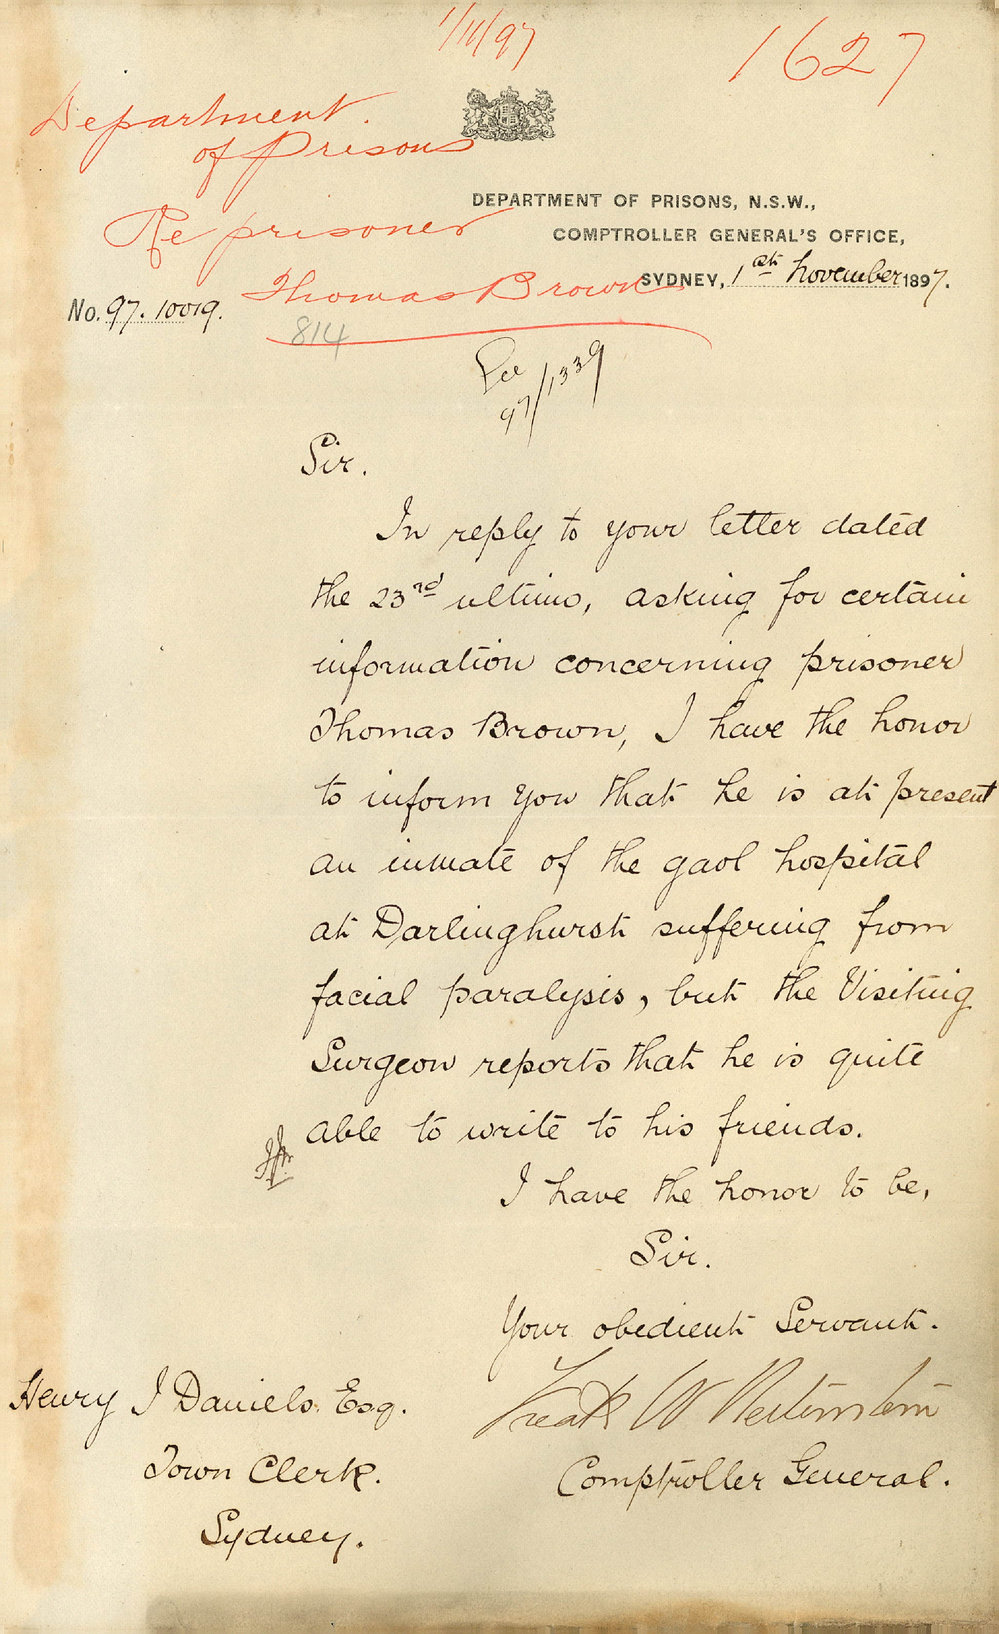 1/11/97
1627
Department
of Prisons
Re prisoner
Thomas Brown
DEPARTMENT OF PRISONS, N.S.W.,
COMPTROLLER GENERAL'S OFFICE,
SYDNEY, 1st November 1897.
No. 97.10019.
814
See
97/1339
Sir.
In reply to your letter dated
the 23rd ultimo, asking for certain
information concerning prisoner
Thomas Brown, I have the honor
to inform you that he is at present
an inmate of the gaol hospital
at Darlinghurst suffering from
facial paralysis, but the Visiting
Surgeon reports that he is quite
able to write to his friends.
I have the honor to be,
Sir.
Your obedient Servant.
W
Comptroller General.
Henry J Daniels. Esq.
Town Clerk.
Sydney.